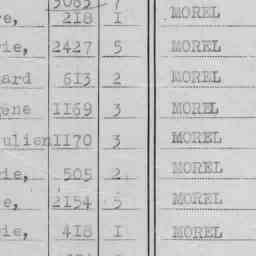 3085 7
re, 218 1 MOREL
rie, 2427 5 MOREL
ard 613 2 MOREL
gène 1169 3 MOREL
ulien 1170 3 MOREL
rie, 505 2 MOREL
e, 2154 5 MOREL
rie, 418 1 MOREL